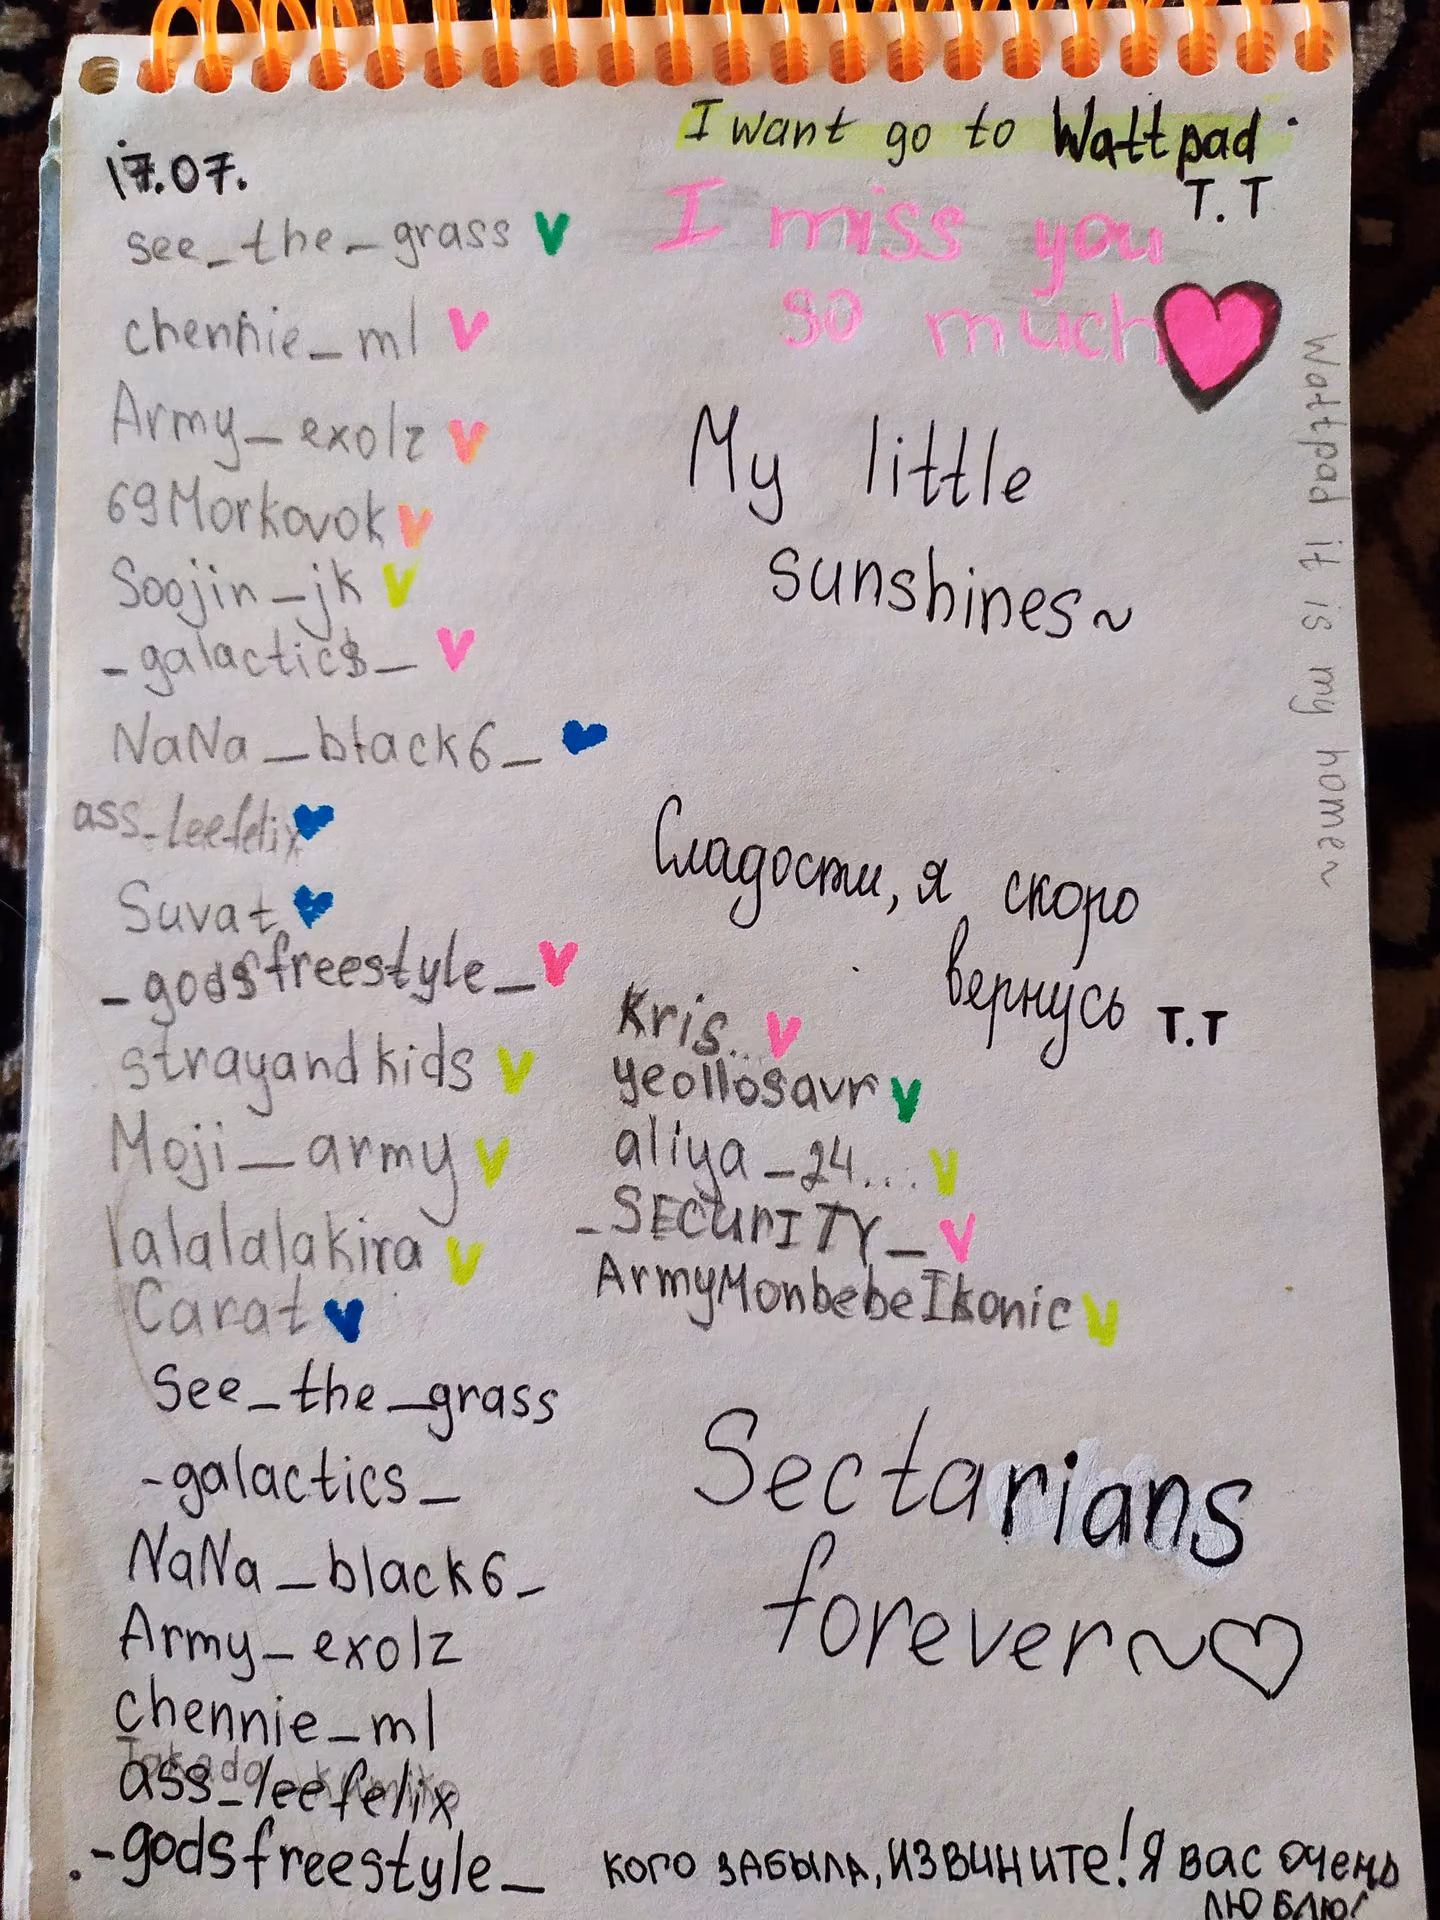 I want go to Wattpad.
T.T
17.07.
I miss you
so much
Wattpad it is my home~
see_the_grass
chennie_ml
Army_exolz
69Morkovok
Soojin_jk
_galactics_
NaNa_black6_
ass_leefelix
Suvat
_godsfreestyle_
strayandkids
Moji_army
lalalalakira
Carat
See_the_grass
-galactics_
NaNa_black6_
Army_exolz
chennie_ml
ass_leefelix
.-godsfreestyle_
My little
sunshines~
Сладости, я скоро
вернусь T.T
Kris...
yeollosavr
aliya_24...
_SECURITY_
ArmyMonbebeIkonic
Sectarians
forever~
кого забыла, извините! Я вас очень
люблю!